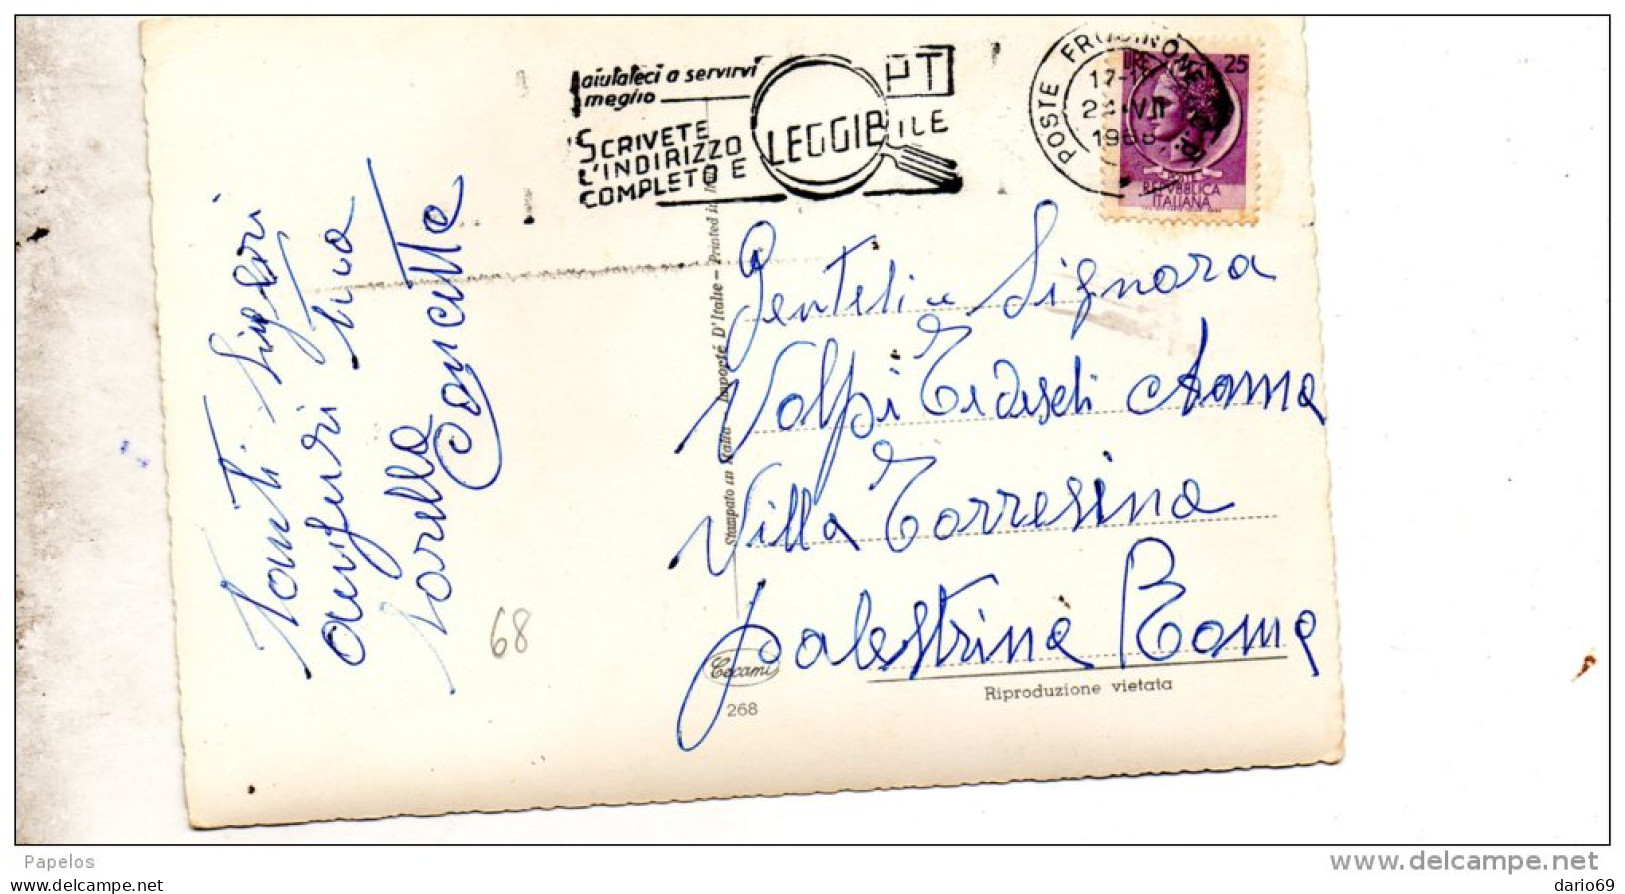 aiutateci a servirvi
meglio
SCRIVETE
L'INDIRIZZO
COMPLETO E
LEGGIBILE
PT
POSTE FROSINONE
17-1
VII
LIRE 25
POSTE
REPVBBLICA
ITALIANA
Tanti
auguri
sorella
Concetta
68
Stampato in Italia - Importé D'Italie - Printed in
Gentel Signora
Volpi Tedeschi Anna
Villa Torresina
Palestrina Roma
Cecami
268
Riproduzione vietata
Papelos
www.delcampe.net
dario69